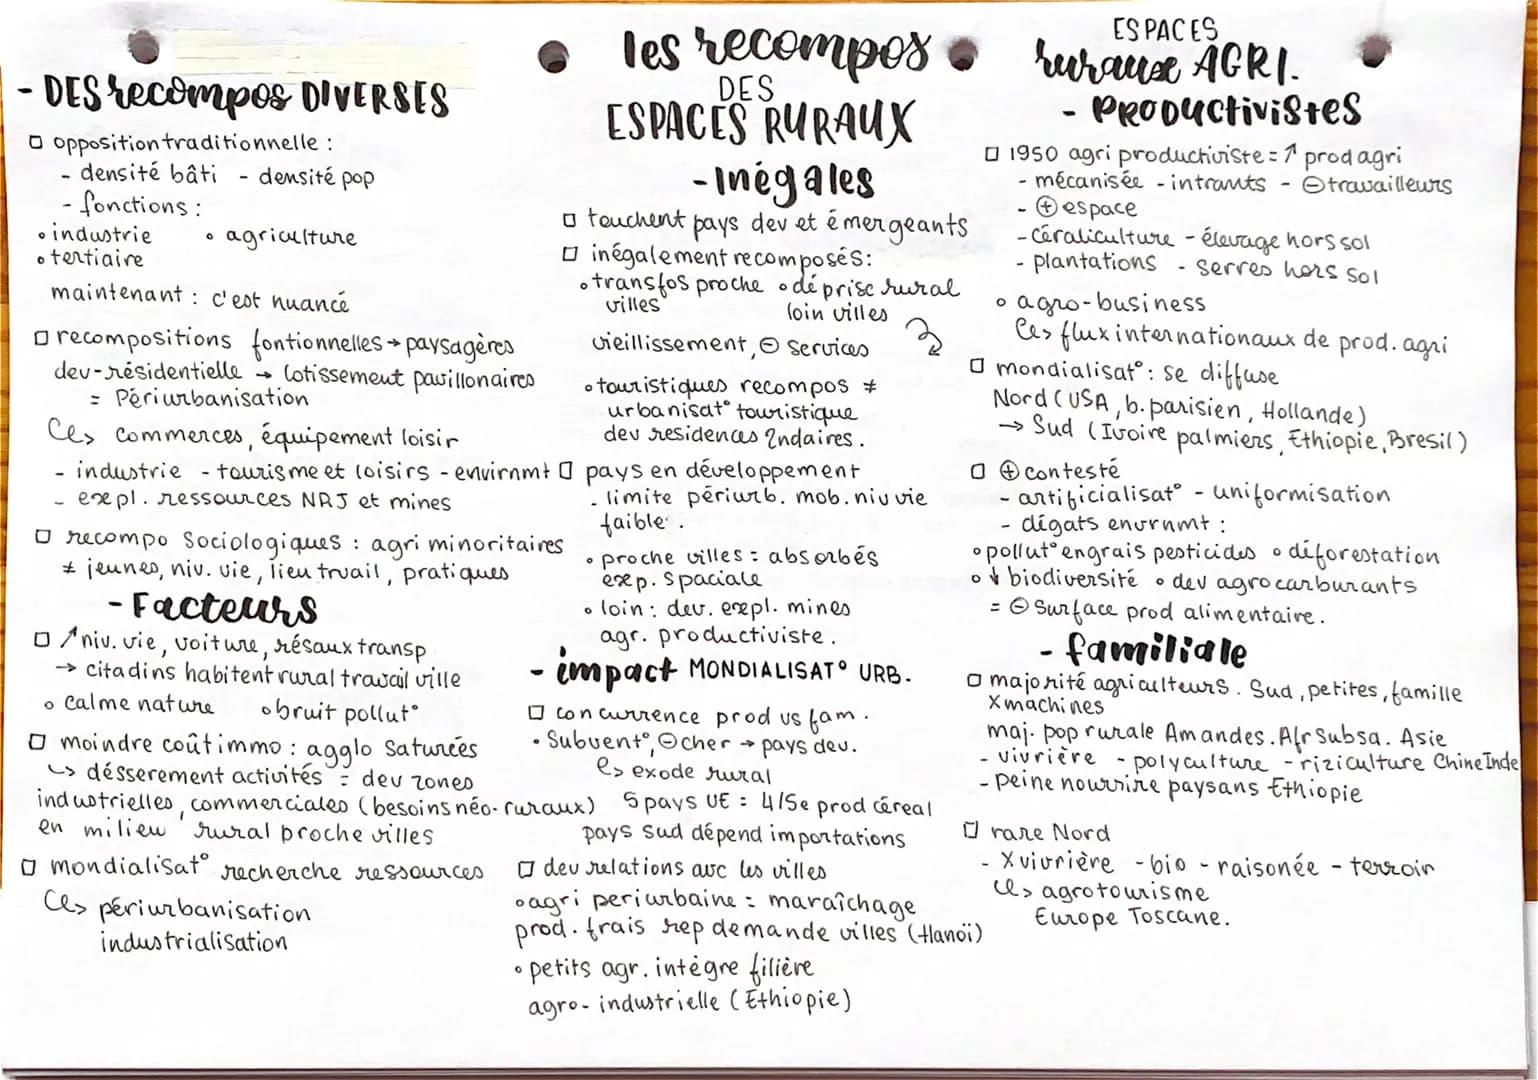 - DES recompos DIVERSES
□ opposition traditionnelle :
- densité bâti - densité pop
- fonctions :
• industrie • agriculture
• tertiaire
maintenant : c'est nuancé
□ recompositions fontionnelles → paysagères
dev-résidentielle → lotissement pavillonaires
= Périurbanisation
↳ commerces, équipement loisir
- industrie - tourisme et loisirs - envirnmt
- expl. ressources NRJ et mines
□ recompo Sociologiques : agri minoritaires
≠ jeunes, niv. vie, lieu truail, pratiques
- Facteurs
□ ↗ niv. vie, voiture, résaux transp
→ citadins habitent rural travail ville
• calme nature • bruit pollut°
□ moindre coût immo : agglo saturées
↳ désserement activités = dev zones
industrielles, commerciales (besoins néo-ruraux)
en milieu rural proche villes
□ mondialisat° recherche ressources
↳ périurbanisation
industrialisation
les recompos
DES
ESPACES RURAUX
- Inégales
□ touchent pays dev et émergeants
□ inégalement recomposés:
• transfos proche • déprise rural
villes loin villes
vieillissement, ⊖ services
• touristiques recompos ≠
urbanisat° touristique
dev residences 2ndaires.
□ pays en développement
- limite périurb. mob. niv vie
faible.
• proche villes = absorbés
exp. spaciale
• loin : dev. expl. mines
agr. productiviste.
- impact MONDIALISAT° URB.
□ concurrence prod vs fam.
• Subvent°, ⊖ cher → pays dev.
↳ exode rural
5 pays UE = 4/5e prod céreal
pays sud dépend importations
□ dev relations avc les villes
• agri periurbaine = maraîchage
prod. frais rep demande villes (Hanoï)
• petits agr. intègre filière
agro-industrielle (Ethiopie)
ESPACES
ruraux AGRI.
- PRODUctiviStes
□ 1950 agri productiviste = ↗ prod agri
- mécanisée - intrants - ⊖ travailleurs
- ⊕ espace
- Céraliculture - élevage hors sol
- plantations - serres hors sol
• agro-business
↳ flux internationaux de prod. agri
□ mondialisat° : se diffuse
Nord (USA, b. parisien, Hollande)
→ Sud (Ivoire palmiers, Ethiopie, Bresil)
□ ⊕ contesté
- artificialisat° - uniformisation
- dégats envrnmt :
• pollut° engrais pesticides • déforestation
• ↓ biodiversité • dev agrocarburants
= ⊖ surface prod alimentaire.
- familiale
□ majorité agriculteurs. Sud, petites, famille
X machines
maj. pop rurale Am andes. Afr Subsa. Asie
- vivrière - polyculture - riziculture Chine Inde
- peine nourrire paysans Ethiopie
□ rare Nord
- X vivrière - bio - raisonée - terroir
↳ agrotourisme
Europe Toscane.